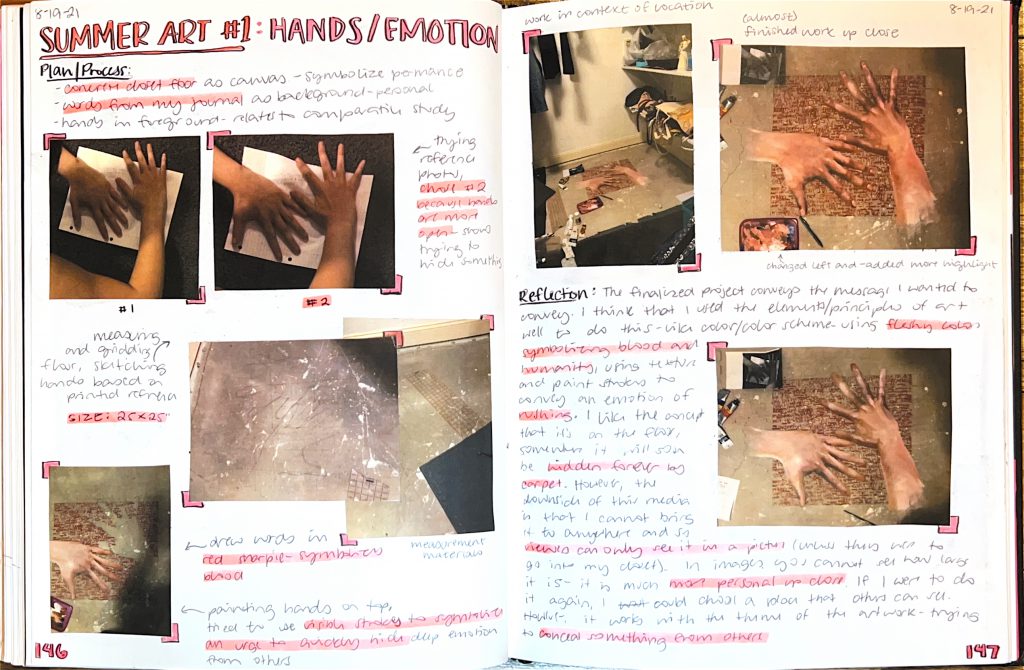 8-19-21
SUMMER ART #1: HANDS/EMOTION
Plan/Process:
- concrete closet floor as canvas - symbolize permance
- words from my journal as background - personal
- hands in foreground - relates to comparative study
← trying
reference
photos,
chose #2
because hands
are more
open - shows
trying to
hide something
#1
#2
measuring
and gridding
floor, sketching
hands based on
printed reference
SIZE: 25x25"
← drew words in
red sharpie - symbolizes
blood
measurement
materials
← painting hands on top,
tried to use visible strokes to symbolize
an urge to quickly hide deep emotion
from others
146
work in context of location
8-19-21
(almost)
finished work up close
changed left and - added more highlight
Reflection: The finalized project conveys the message I wanted to
convey. I think that I used the elements/principles of art
well to do this - like color/color scheme - using fleshy color,
symbolizing blood and
humanity, using texture
and paint strokes to
convey an emotion of
rushing. I like the concept
that it's on the floor,
somewhere it will soon
be hidden forever by
carpet. However, the
downside of this media
is that I cannot bring
it to anywhere and so
viewers can only see it in a picture (unless they were to
go into my closet). In images you cannot see how large
it is - it is much more personal up close. If I were to do
it again, I could choose a place that others can see.
However, it works with the theme of the artwork - trying
to conceal something from others
147